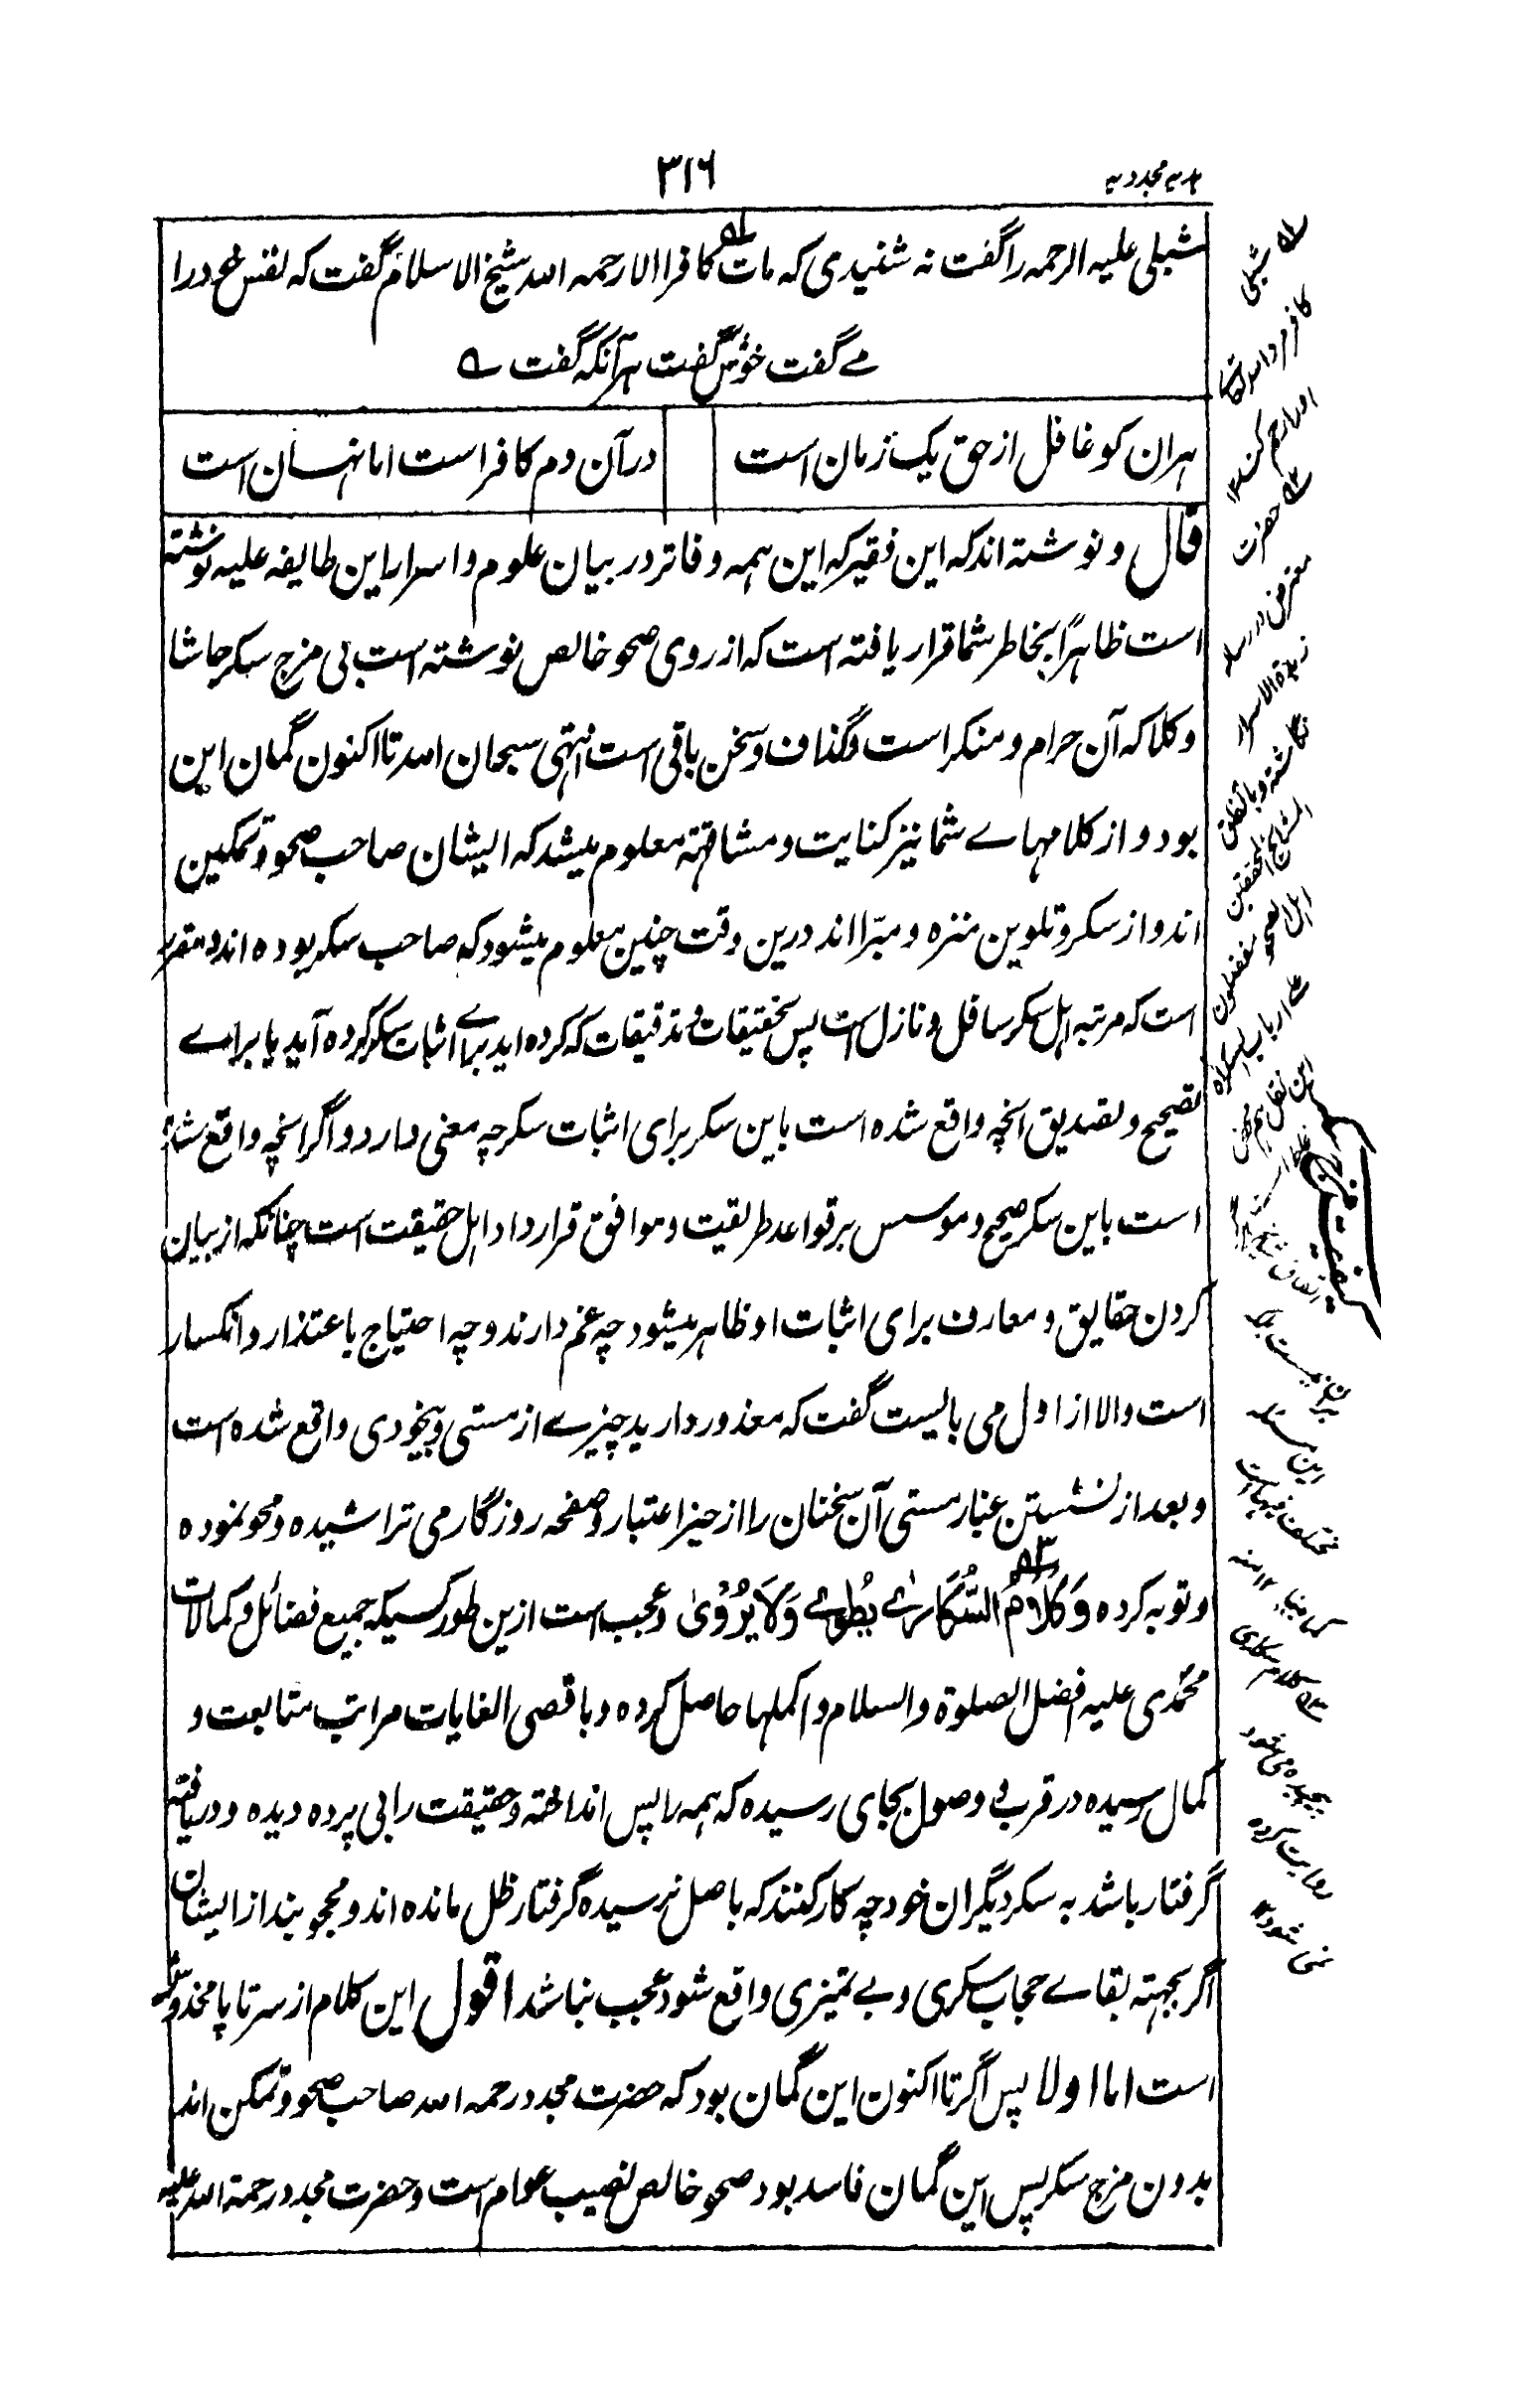 ۳۱۶
شبلی علیه الرحمه را گفت نه شنیدی که مات کافرا الا رحمه الله شیخ الاسلام گفت که نفس خود را
مے گفت خوش گفت هر آنکه گفت
هران کو غافل از حق یک زمان است
در آن دم کافر است اما نهان است
قال و نوشته اند که این فقیر که این همه دفاتر در بیان علوم و اسرار این طایفه علیه نوشته
است ظاهراً بخاطر شما قرار یافته است که از روی صحو خالص نوشته است بی مزج سکر حاشا
وکلا که آن حرام و منکر است و گذاف و سخن باقی است انتهی سبحان الله تا اکنون گمان این
بود و از کلامهاے شما نیز کنایت و مشافهة معلوم میشد که ایشان صاحب صحو و تمکین
اند و از سکر و تلوین منزه و مبرّا اند درین وقت چنین معلوم میشود که صاحب سکر بوده اند و مقرر
است که مرتبه اهل سکر سافل و نازل است پس تحقیقات و تدقیقات که کرده اید براے اثبات سکر کرده آید یا براے
تصحیح و تصدیق انچه واقع شده است باین سکر برای اثبات سکر چه معنی دارد و اگر انچه واقع شده
است باین سکر صحیح و موسس بر قواعد طریقت و موافق قرارداد اهل حقیقت است چنانکه از بیان
کردن حقایق و معارف برای اثبات او ظاهر میشود چه غم دارند و چه احتیاج باعتذار و انکسار
است والا از اول می بایست گفت که معذور دارید چیزے از مستی و بیخودی واقع شده است
و بعد از نشستن غبار مستی آن سخنان را از حیز اعتبار و صفحه روزگار می تراشیده و محو نموده
و توبه کرده وَکَلَامُ السُّکَارٰے یُطْوٰے وَلَا یُرْوٰی و عجب است ازین طور کسیکه جمیع فضائل و کمالات
محمّدی علیه افضل الصلوة والسلام و اکملها حاصل کرده و باقصی الغایات مراتب متابعت و
کمال رسیده در قرب و وصول بجای رسیده که همه را پس انداخته و حقیقت را بی پرده دیده و دریافته
گرفتار باشد به سکر دیگران خود چه کار کنند که باصل نرسیده گرفتار ظل مانده اند و محجوبند از ایشان
اگر بجهته بقاے حجاب سکری و بے تمیزی واقع شود عجب نباشد اقول این کلام از سرتاپا مخدوش
است اما اولا پس اگر تا اکنون این گمان بود که حضرت مجدد رحمه الله صاحب صحو و تمکن اند
بدون مزج سکر پس این گمان فاسد بود صحو خالص نصیب عوام است و حضرت مجدد رحمة الله علیه
شبلی
کافر مرد
حضرت
معترض در رساله
زبدة الاسرار
نگاشته و باتفاق
المشایخ المحققین
اهل الصحو
یفضلون
علے ارباب السکر
این نقل هم
کیفیت مزج سکر
کلام سکاری
پیچیده می شود
روایت کرده
نمی شود